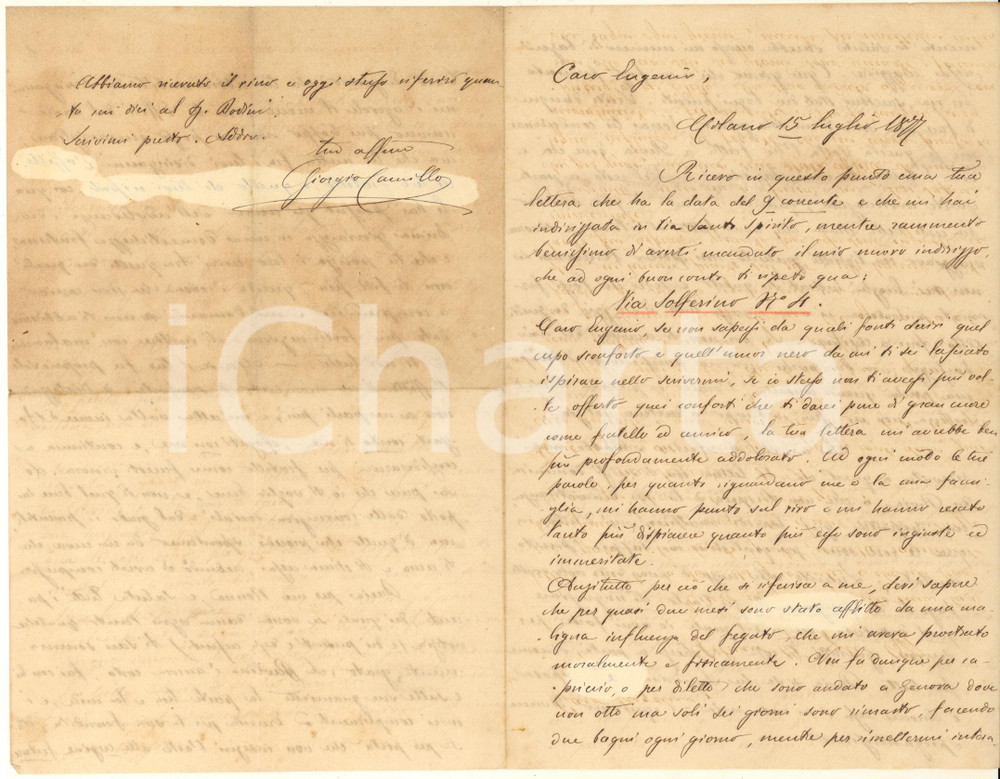 Abbiamo ricevuto il vino e oggi stesso riferirò quan-
to mi dici al Bodini.
Scrivimi presto. Addio.
tuo affmo
Giorgio Camillo
Caro Eugenio,
Milano 15 luglio 1877
Ricevo in questo punto una tua
lettera che ha la data del 9 corrente e che mi hai
indirizzata in Via Santo Spirito, mentre rammento
benissimo di averti mandato il mio nuovo indirizzo,
che ad ogni buon conto ti ripeto qua:
Via Solferino No 4.
Caro Eugenio, se non sapessi da quali fonti derivi quel
cupo sconforto e quell'umor nero da cui ti sei lasciato
ispirare nello scrivermi, se io stesso non ti avessi più vol-
te offerto quei conforti che ti darei pure di gran cuore
come fratello ed amico, la tua lettera mi avrebbe ben
più profondamente addolorato. Ad ogni modo le tue
parole, per quanto riguardano me e la mia fami-
glia, mi hanno punto sul vivo e mi hanno recato
tanto più dispiacere quanto più esse sono ingiuste ed
immeritate.
Anzitutto per ciò che si riferisce a me, devi sapere
che per quasi due mesi sono stato afflitto da una ma-
ligna influenza del fegato, che mi aveva prostrato
moralmente e fisicamente. Non fu dunque per ca-
priccio, o per diletto che sono andato a Genova dove
non otto ma soli sei giorni sono rimasto, facendo
due bagni ogni giorno, mentre per rimettermi intera
iCharta